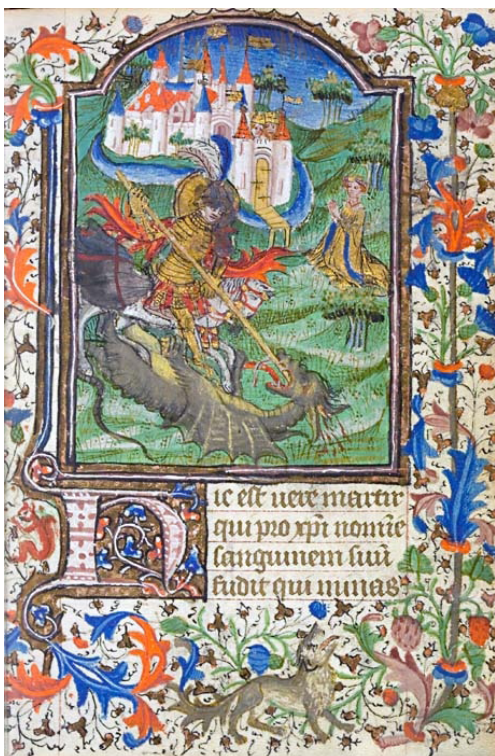 Hic est vere martir
qui pro xpi nomĩe
sanguinem suũ
fudit qui minas